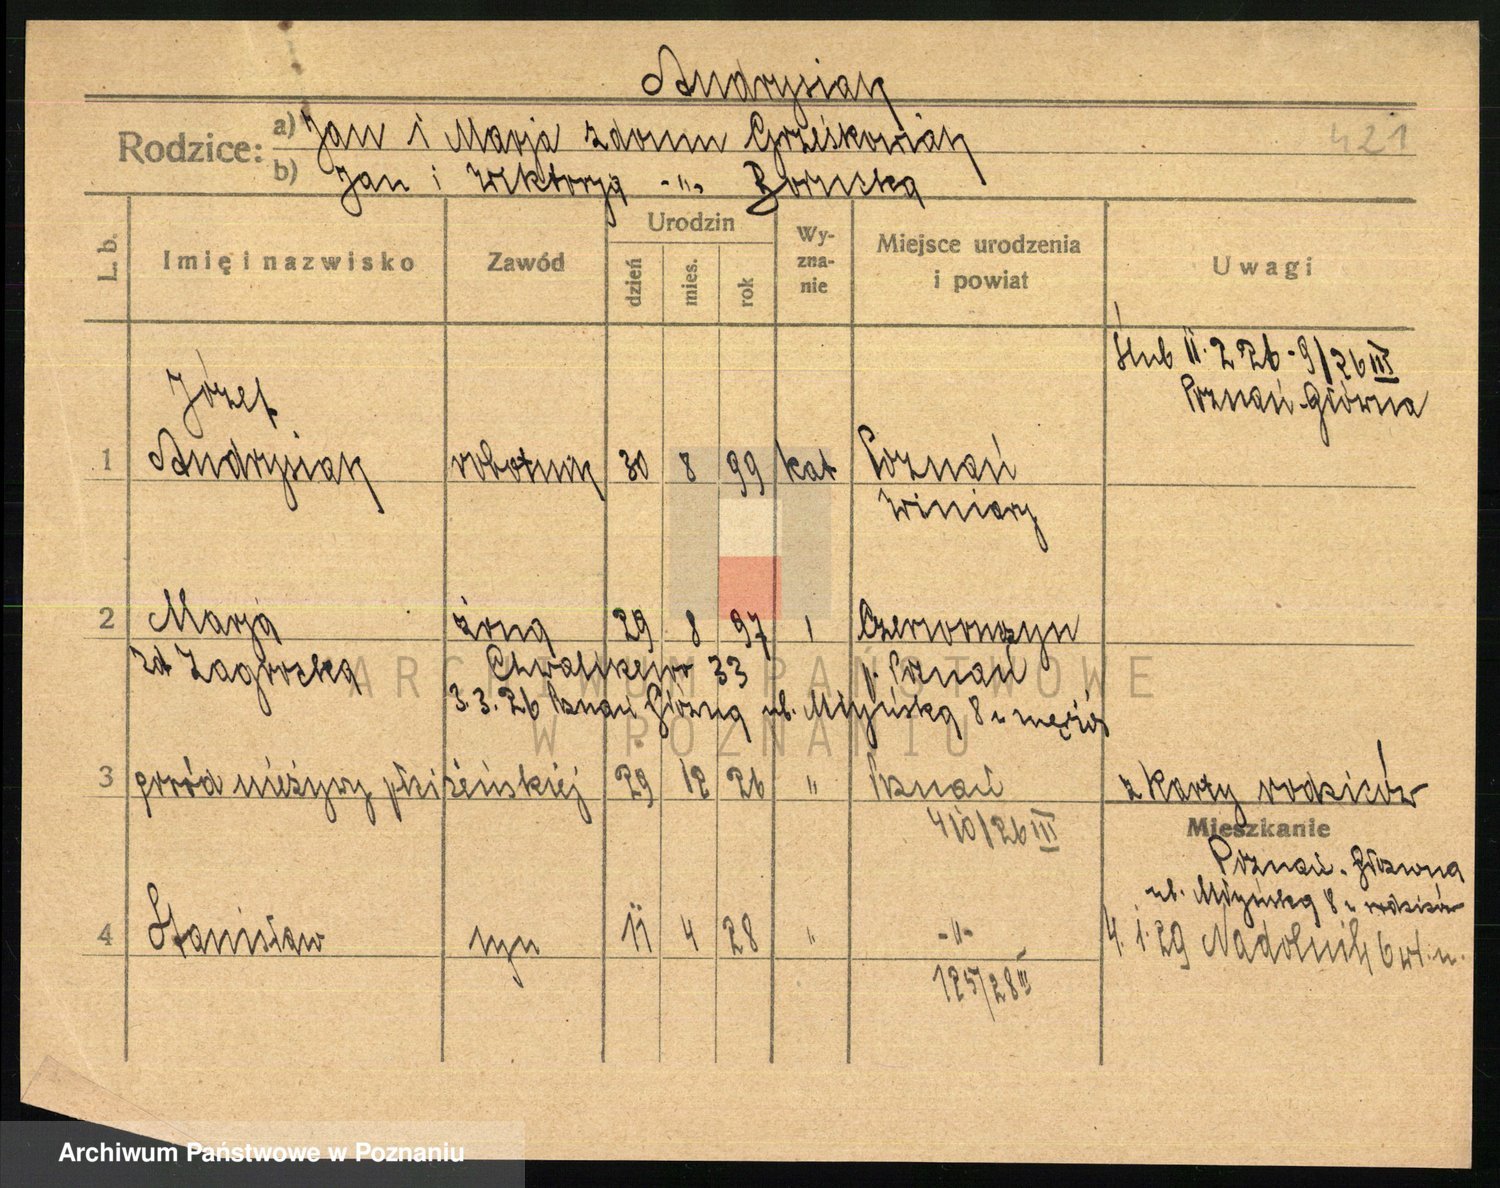 Andrysiak
421
Rodzice: a) Jan i Marja zdomu Grześkowiak
b) Jan i Wiktorja -"- Bornicka
L. b.
Imię i nazwisko
Zawód
Urodzin
dzień
mies.
rok
Wy-
zna-
nie
Miejsce urodzenia
i powiat
Uwagi
Ślub 11.2 26 - 9/26 III
Poznań Główna
Józef
1 Andrysiak robotnik 30 8 99 kat Poznań
Winiary
2 Marja żona 29 8 97 Czerwonczyn
zd Zagrocka 33 p. Poznań
3.3.26 Poznań Główna ul. 8 u
3 poród nieżywy płci żeńskiej 29 12 26 " Poznań z karty rodziców
410/26 III
Mieszkanie
Poznań-Główna
ul. 8 u rodziców
4 Stanisław syn 11 4 28 " -"- 4.1.29 Nadolnik 6 wł. m.
125/28 II
ARCHIWUM PAŃSTWOWE
W POZNANIU
Archiwum Państwowe w Poznaniu